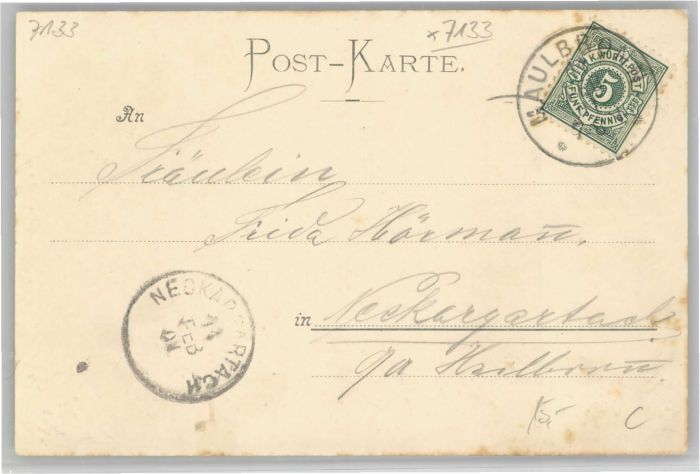 7133
x 7133
POST-KARTE.
MAULBR
K.WÜRTT.POST
5
FÜNF PFENNIG
An
Fräulein
Frida Hörmann,
in Neckargartach
NECKARGARTACH
11
FEB
01
9/a Heilbronn.
15,-
C